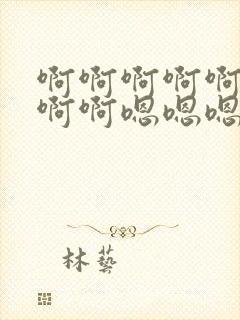 啊啊啊啊啊
啊啊嗯嗯嗯
林藝